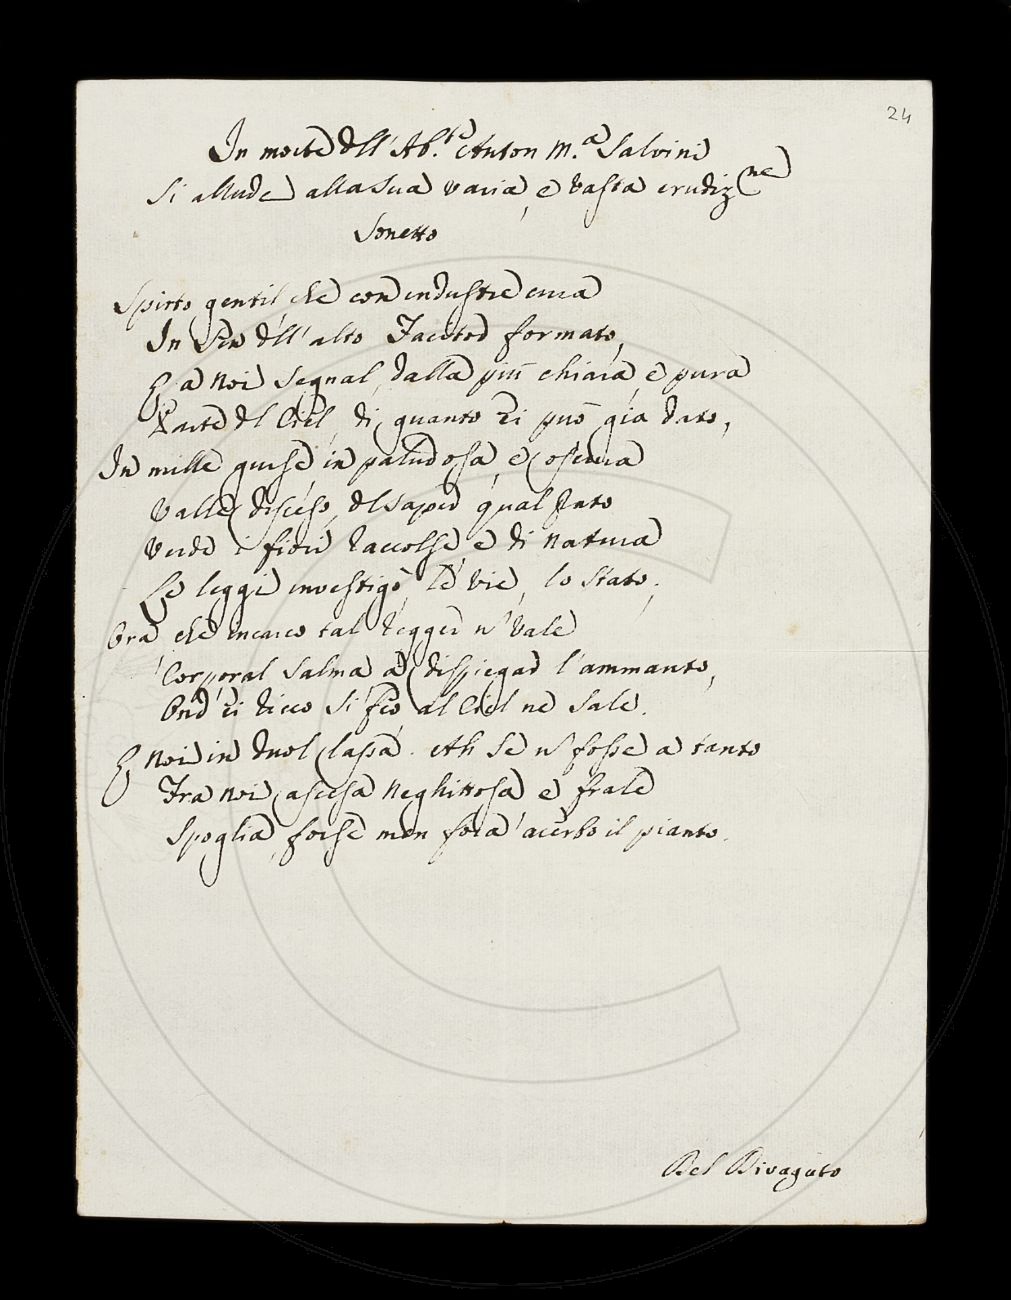 24
In morte dell' Ab.te Anton M.a Salvini
Si allude alla sua varia, e vasta erudiz.ne
Sonetto
Spirto gentil, che con industre cura
In sen dell' alto Facitor formato,
E a noi segnal, dalla più chiara, e pura
Parte del Ciel, di quanto Ei può già dato,
In mille guise in paludosa, e oscura
Valle disceso, del saper qual prato
Verde i fiori raccolse, e di natura
Le leggi investigò, le vie, lo stato;
Ora che incarco tal regger n' vale
Corporal salma a dispiegar l'ammanto,
Ond' Ei ricco si feo, al Ciel ne sale.
E noi in duol lassa. Ah se n' fosse a tanto
Fra noi ascesa neghittosa e frale
Spoglia, forse men fora acerbo il pianto.
Del Divagato